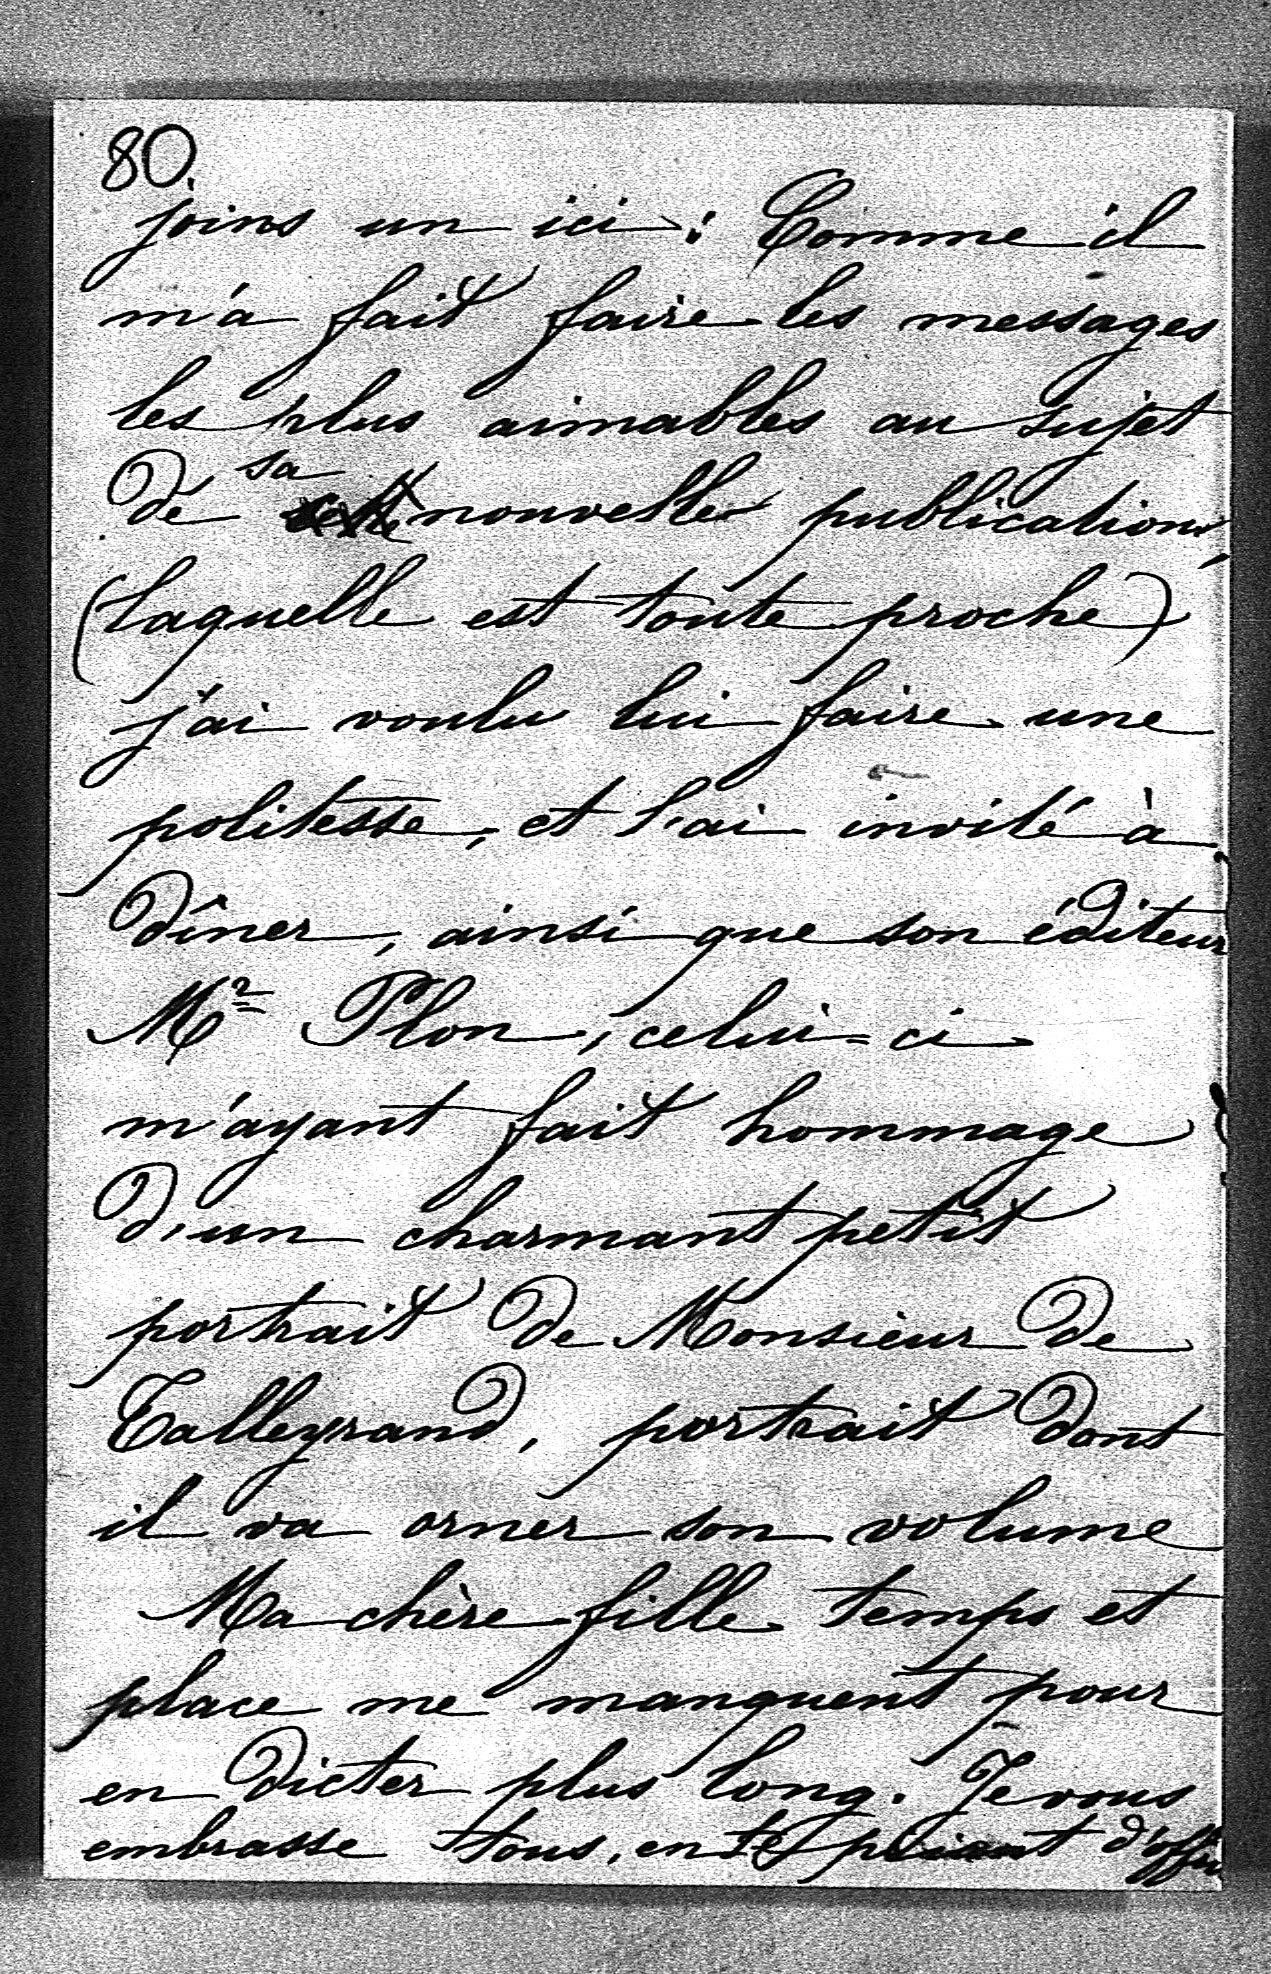 80.
joins un ici : Comme il
m'a fait faire les messages
les plus aimables au sujet
de sa nouvelle publication,
(laquelle est toute proche)
j'ai voulu lui faire une
politesse, et l'ai invité à
dîner, ainsi que son éditeur
Mr Plon, celui-ci
m'ayant fait hommage
d'un charmant petit
portrait de Monsieur de
Talleyrand, portrait dont
il va orner son volume
Ma chère fille temps et
place me manquent pour
en dicter plus long. Je vous
embrasse tous, en te priant d'offrir